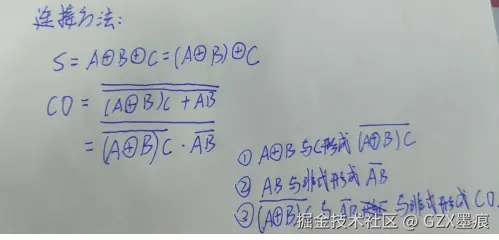 连接方法:
S = A⊕B⊕C = (A⊕B)⊕C
CO = \overline{\overline{(A⊕B)C + AB}}
= \overline{\overline{(A⊕B)C} · \overline{AB}}
① A⊕B 与C形成 \overline{(A⊕B)C}
② AB 与非式形成 \overline{AB}
③ \overline{(A⊕B)C} 与 \overline{AB} 与非式形成 CO.
掘金技术社区 @ GZX墨痕